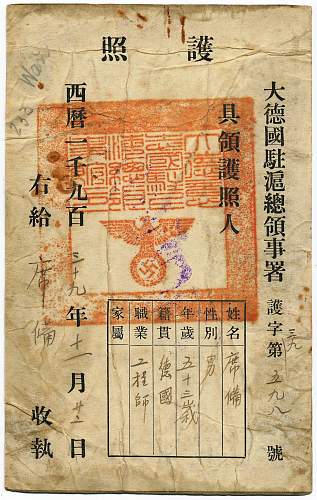 護照
大德國駐滬總領事署護字第三九五九八號
具領護照人
姓名 席備
性別 男
年歲 五十三歲
籍貫 德國
職業 工程師
家屬
西曆一千九百三十九年十一月廿二日
右給 席備 收執